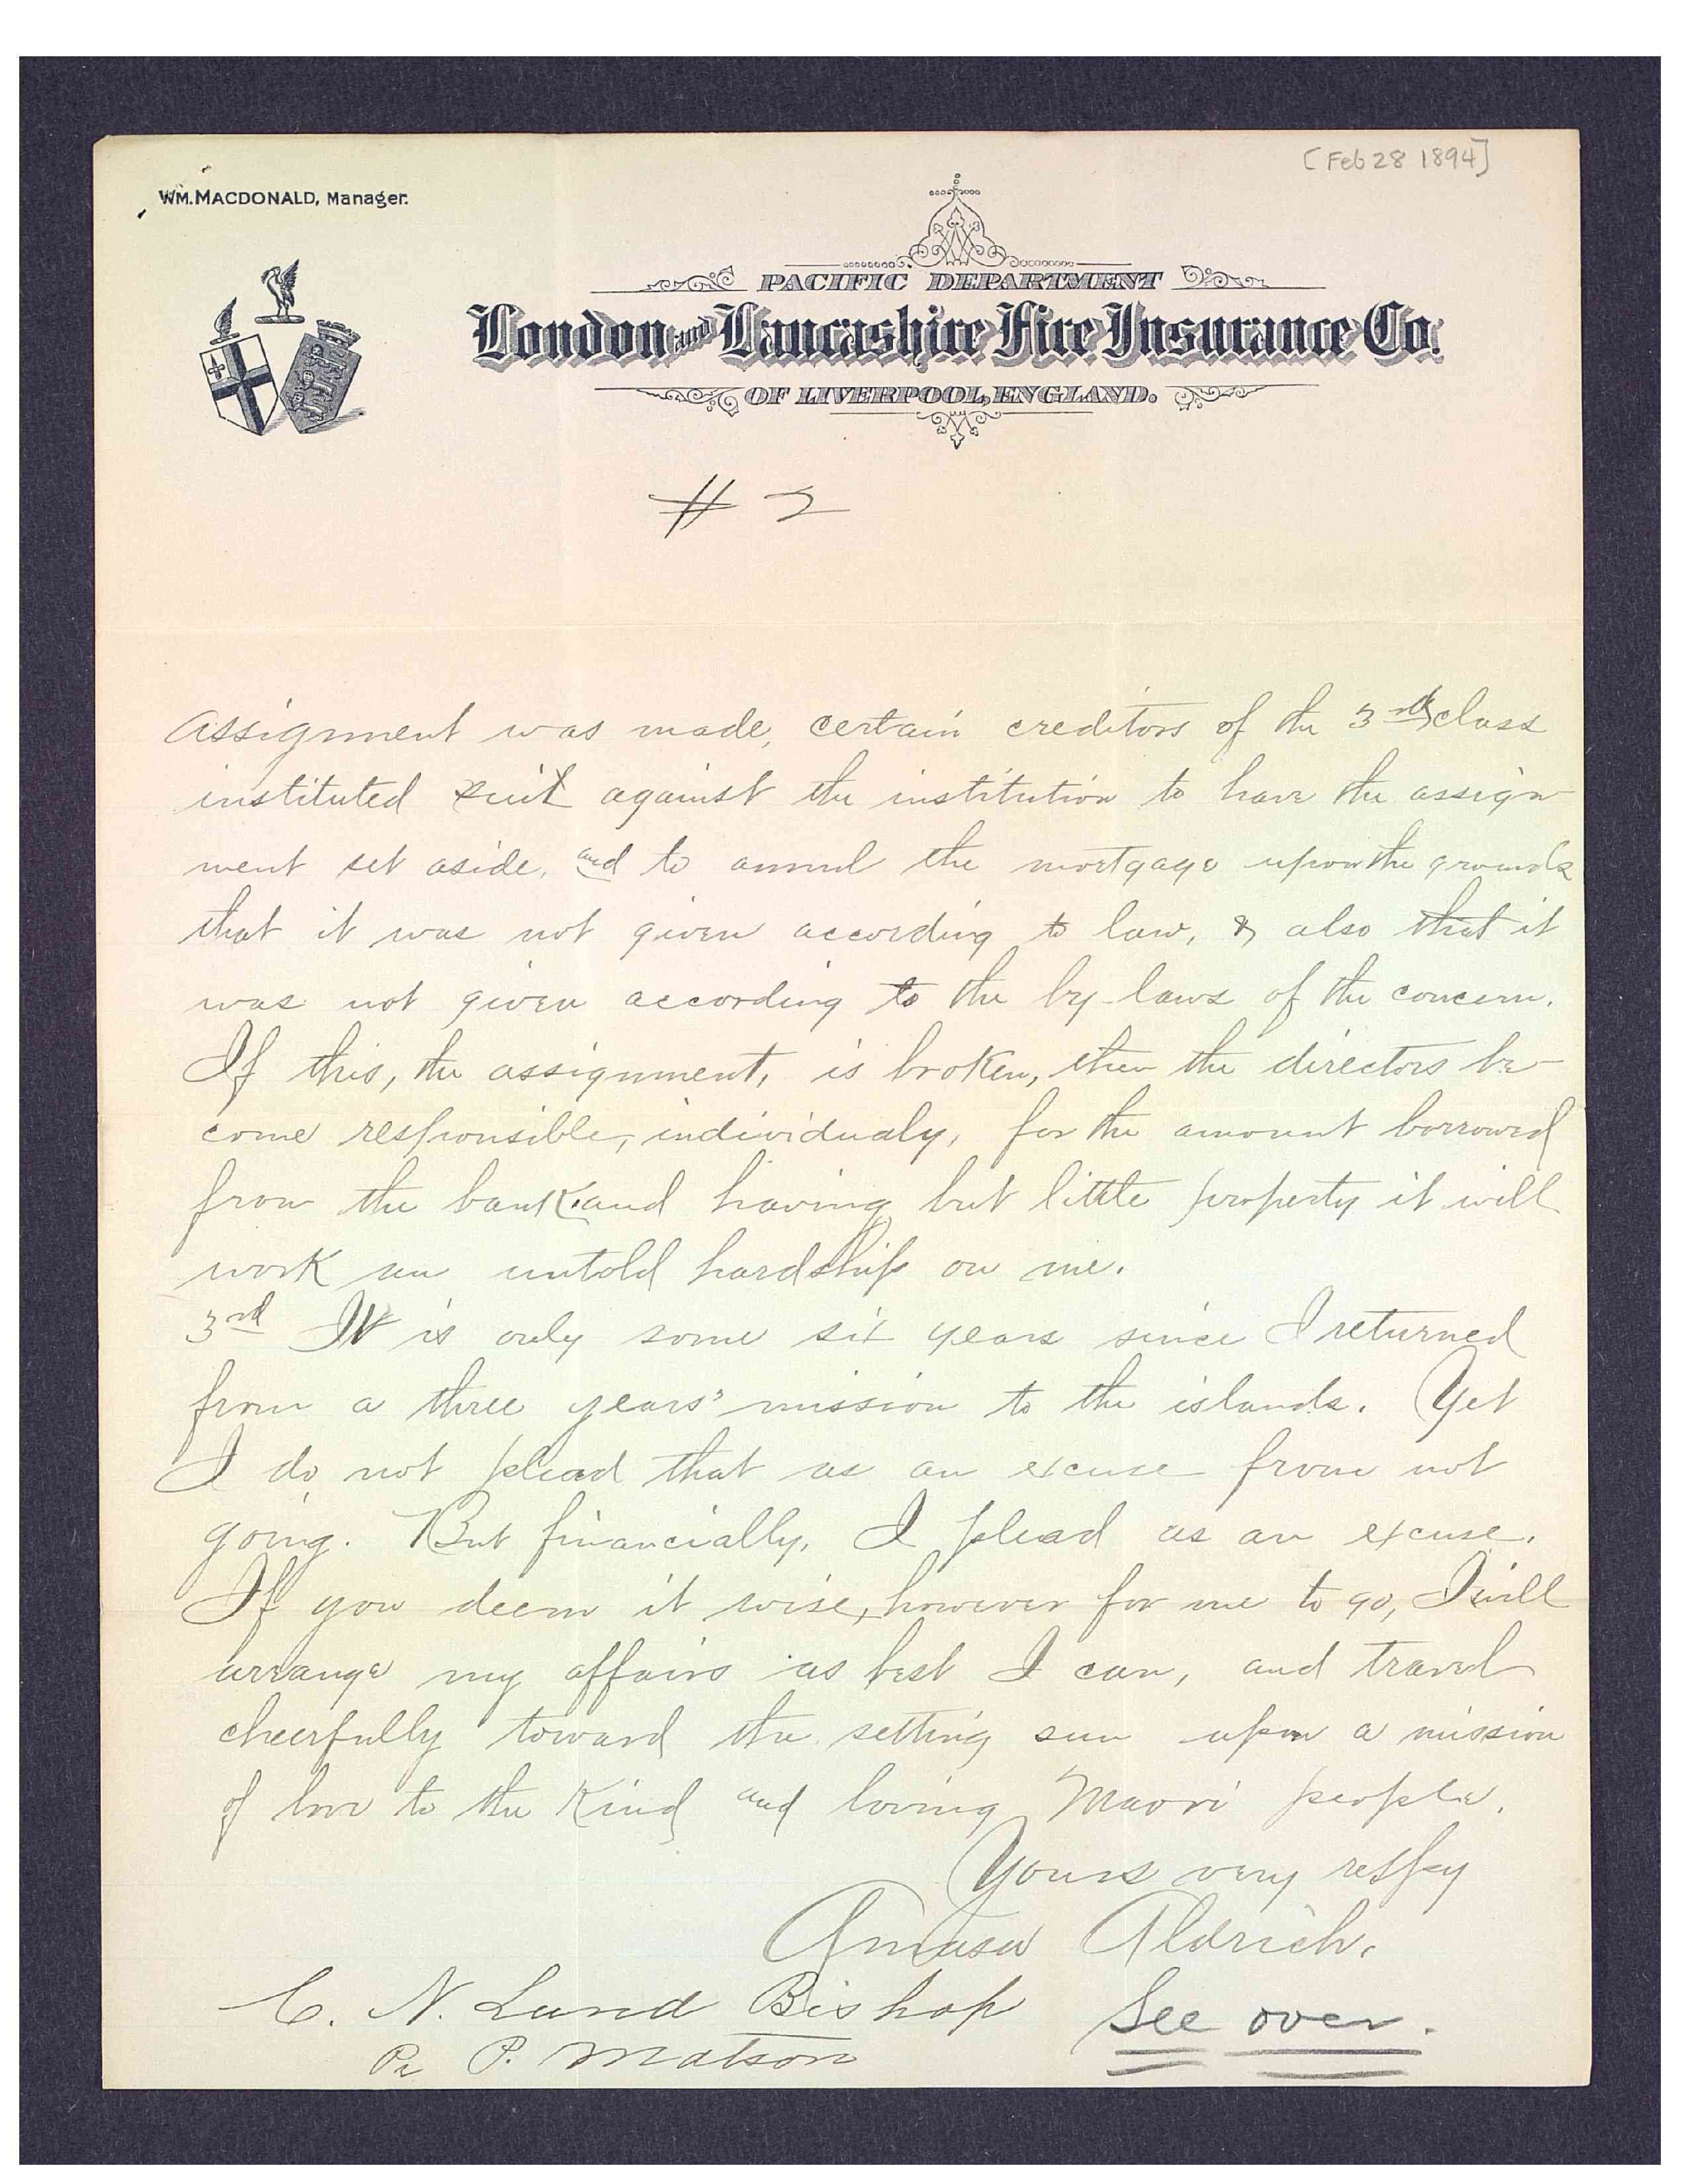 [Feb 28 1894]
WM. MACDONALD, Manager.
PACIFIC DEPARTMENT
London and Lancashire Fire Insurance Co.
OF LIVERPOOL, ENGLAND.
# 2
assignment was made, certain creditors of the 3rd class
instituted suit against the institution to have the assign-
ment set aside, and to annul the mortgage upon the grounds
that it was not given according to law, & also that it
was not given according to the by-laws of the concern.
If this, the assignment, is broken, then the directors be-
come responsible, individualy, for the amount borrowed
from the bank and having but little property it will
work an untold hardship on me.
3rd It is only some six years since I returned
from a three years' mission to the islands. Yet
I do not plead that as an excuse from not
going. But financially, I plead as an excuse.
If you deem it wise, however for me to go, I will
arrange my affairs as best I can, and travel
cheerfully toward the setting sun upon a mission
of love to the kind and loving Maori people.
Yours very respy
Amasa Aldrich.
C. N. Lund Bishop
Pr P. Matson
See over.